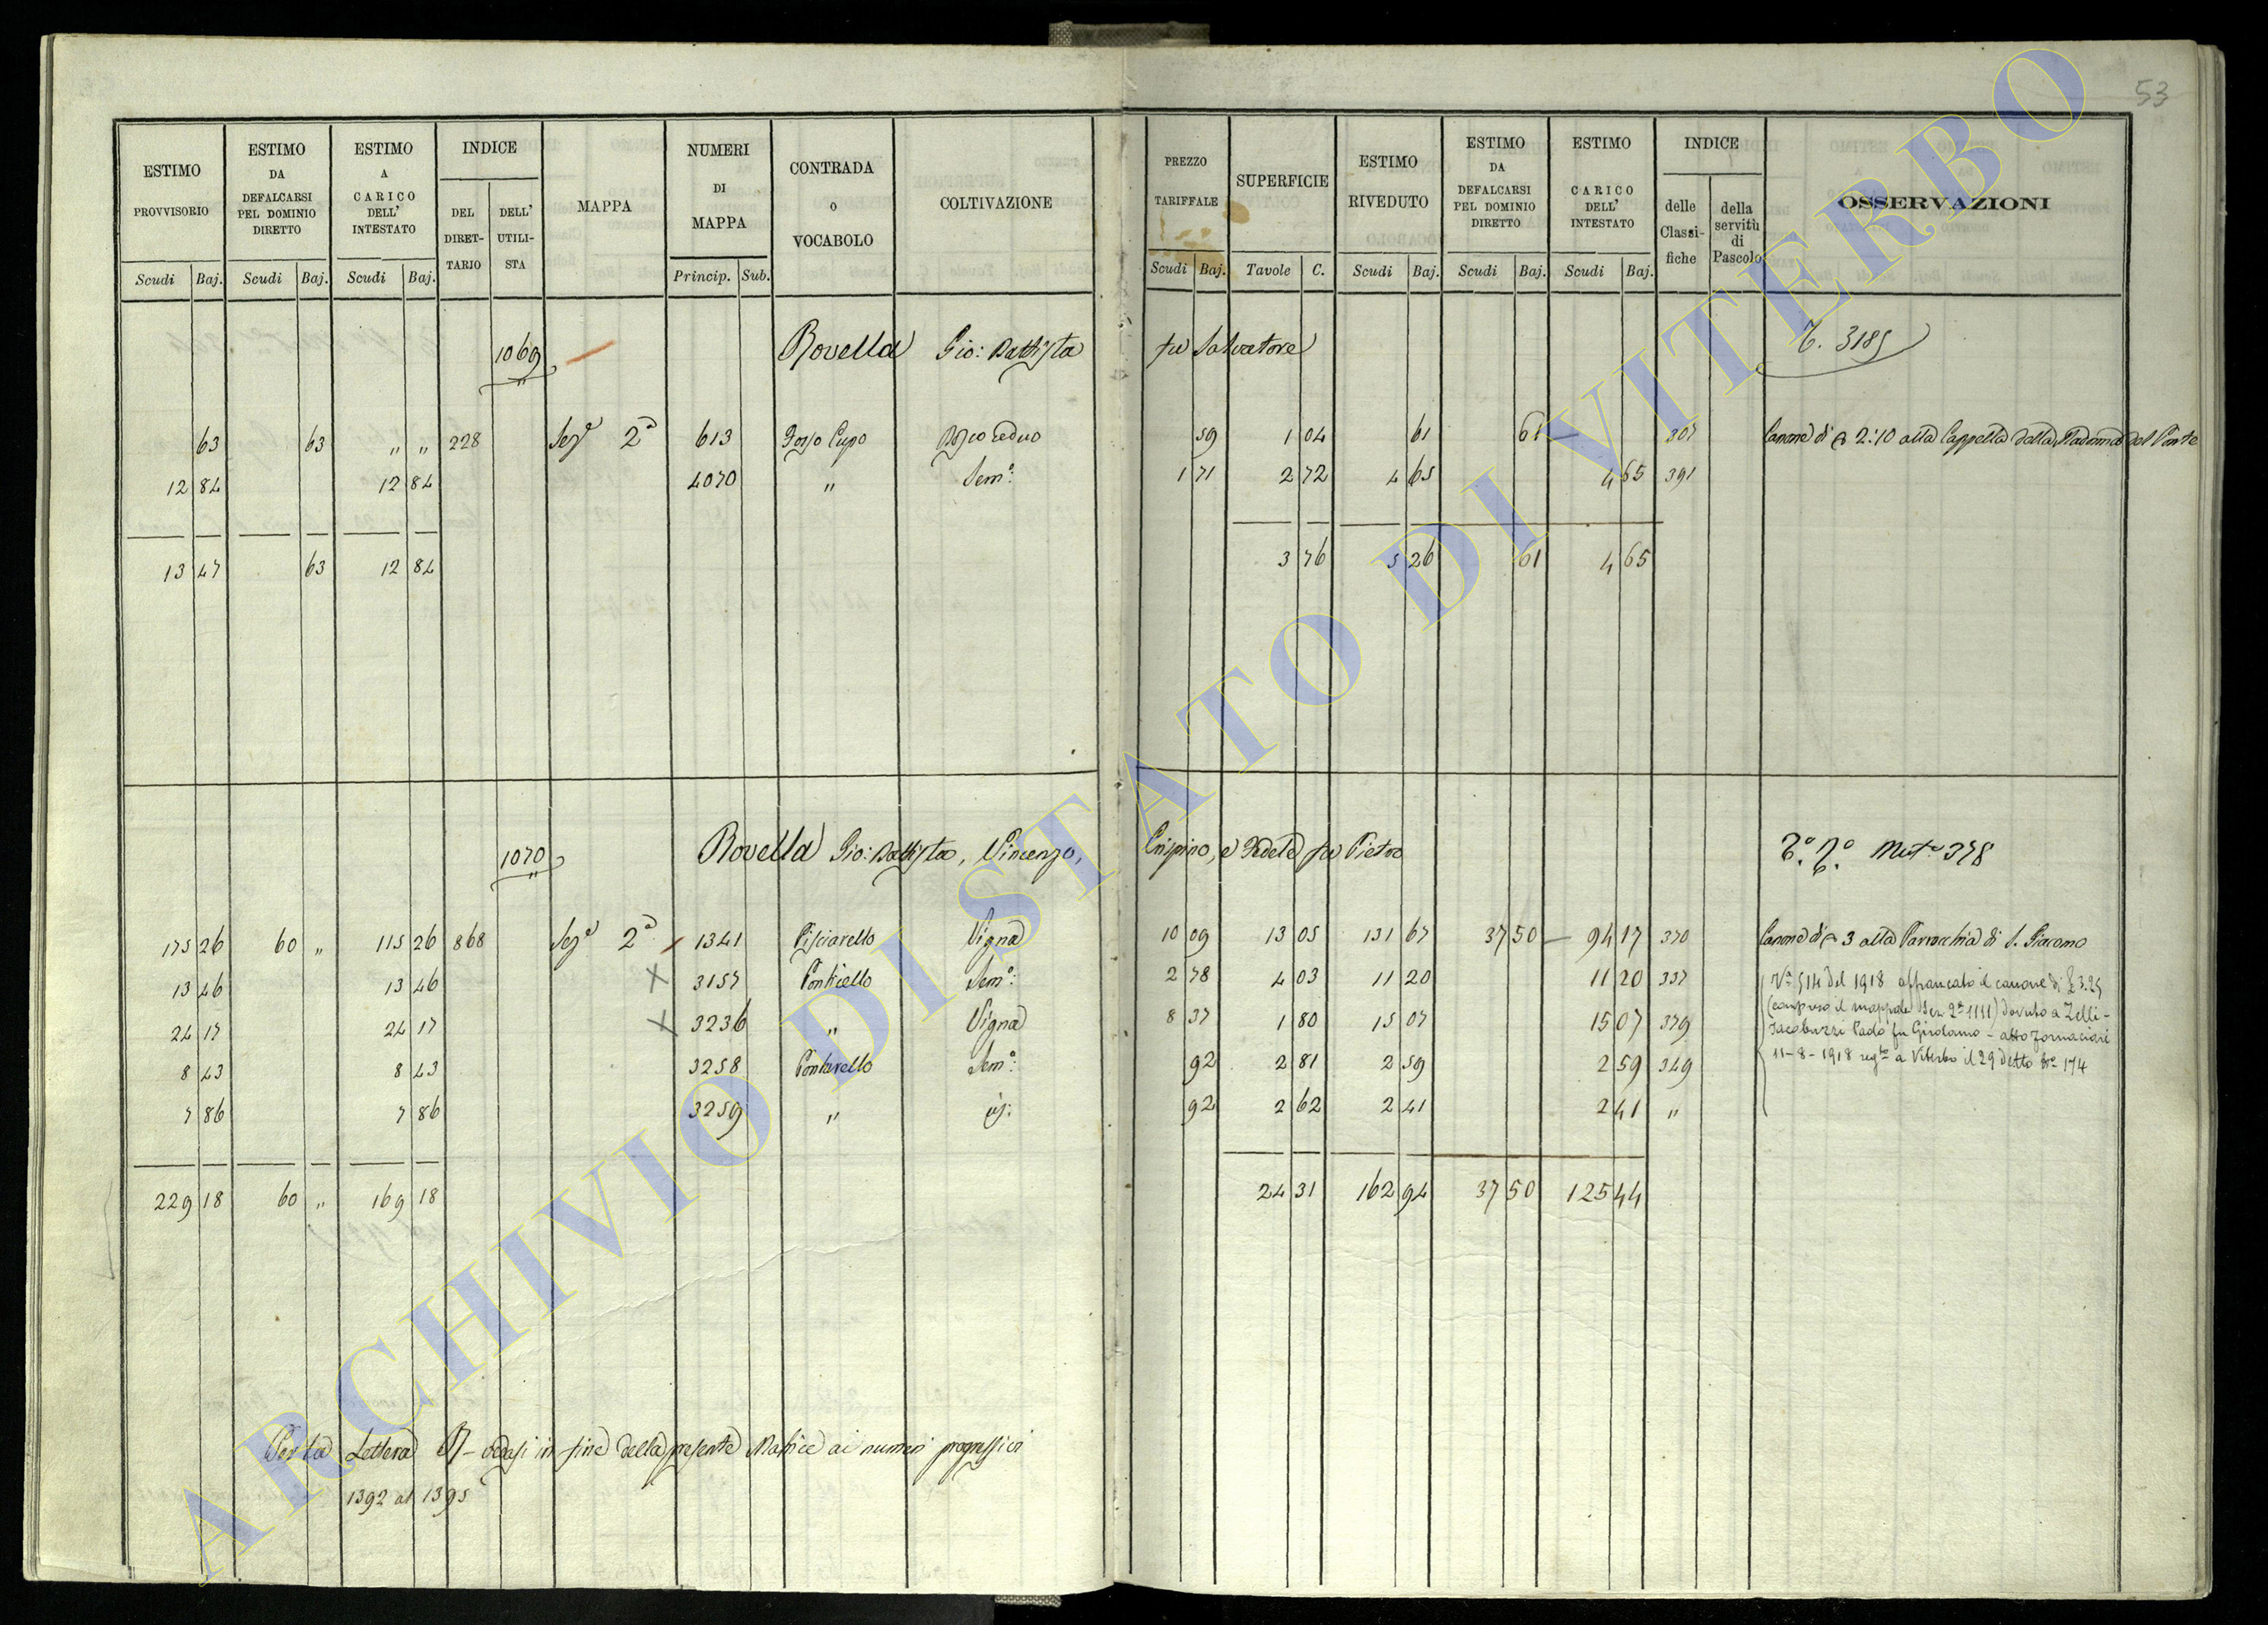 53
ESTIMO PROVVISORIO Scudi Baj.
ESTIMO DA DEFALCARSI PEL DOMINIO DIRETTO Scudi Baj.
ESTIMO A CARICO DELL' INTESTATO Scudi Baj.
INDICE DEL DIRET-TARIO DELL' UTILI-STA
MAPPA
NUMERI DI MAPPA Princip. Sub.
CONTRADA o VOCABOLO
COLTIVAZIONE
PREZZO TARIFFALE Scudi Baj.
SUPERFICIE Tavole C.
ESTIMO RIVEDUTO Scudi Baj.
ESTIMO DA DEFALCARSI PEL DOMINIO DIRETTO Scudi Baj.
ESTIMO A CARICO DELL' INTESTATO Scudi Baj.
INDICE delle Classi-fiche della servitù di Pascolo
OSSERVAZIONI
1069 Rovella Gio: Battista fu Salvatore 3185
63 63 " " 228 Sez.e 2a 613 Fosso Cupo Bosco ceduo 59 1 04 61 61 307 Canone di 2:10 alla Cappella della Madonna del Ponte
12 84 12 84 4070 " Sem.o: 1 71 2 72 4 65 4 65 391
13 47 63 12 84 3 76 5 26 61 4 65
1070 Rovella Gio: Battista, Vincenzo, Crispino, e Fedele fu Pietro 378
175 26 60 " 115 26 868 Sez.e 2a 1341 Pisciarello Vigna 10 09 13 05 131 67 37 50 — 94 17 370 Canone di 3 alla Parrocchia di S. Giacomo
13 46 13 46 X 3157 Ponticello Sem.o: 2 78 4 03 11 20 11 20 337
24 17 24 17 X 3236 " Vigna 8 37 1 80 15 07 15 07 379
8 43 8 43 3258 Sem.o: 92 2 81 2 59 2 59 349
7 86 7 86 3259 " 92 2 62 2 41 2 41 "
V.a 514 del 1918 affrancato il canone di £ 3.25
(compreso il mappale Sez. 2a 1111) dovuto a Zelli-
Jacobuzzi Paolo fu Girolamo - atto Fornaciari
11-8-1918 reg.to a Viterbo il 29 detto 174
229 18 60 " 169 18 24 31 162 94 37 50 125 44
Lettera R - vedasi in fine della presente Matrice ai numeri progressivi
1392 al 1395
ARCHIVIO DI STATO DI VITERBO